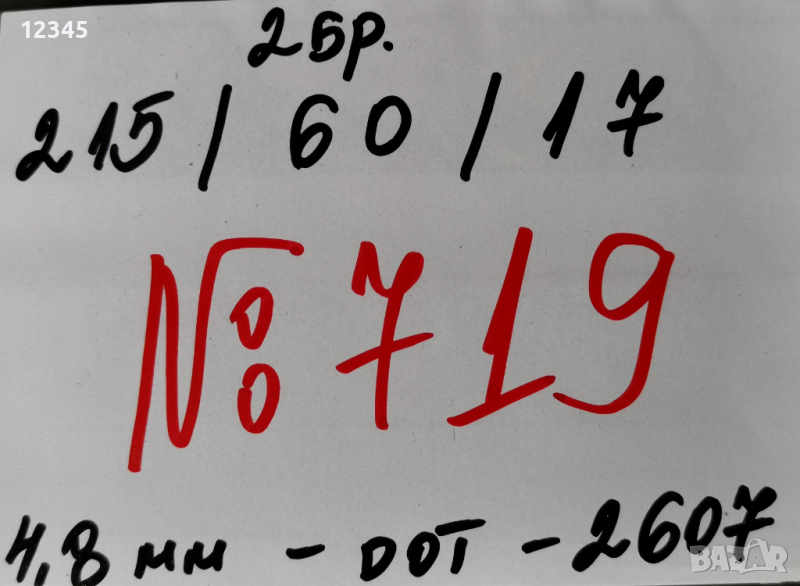 12345
2бр.
215/60/17
№719
4,8 мм - DOT - 2607
BAZAR